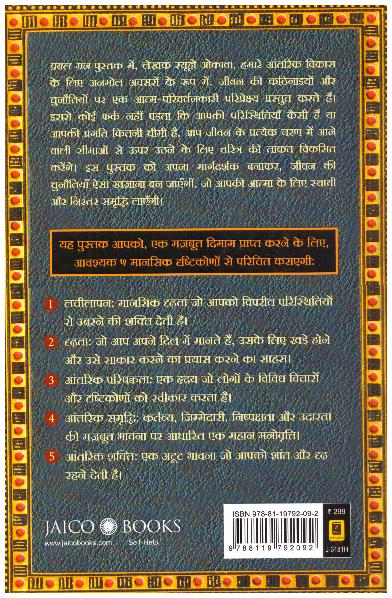 प्रबल मन पुस्तक में, लेखक रयूहो ओकावा, हमारे आंतरिक विकास
के लिए अनमोल अवसरों के रूप में, जीवन की कठिनाइयों और
चुनौतियों पर एक आत्म-परिवर्तनकारी परिप्रेक्ष्य प्रस्तुत करते हैं।
इससे कोई फर्क नहीं पड़ता कि आपकी परिस्थितियाँ कैसी हैं या
आपकी प्रगति कितनी धीमी है, आप जीवन के प्रत्येक चरण में आने
वाली सीमाओं से ऊपर उठने के लिए चरित्र की ताकत विकसित
करेंगे। इस पुस्तक को अपना मार्गदर्शक बनाकर, जीवन की
चुनौतियाँ ऐसा खज़ाना बन जाएँगी, जो आपकी आत्मा के लिए स्थायी
और निरंतर समृद्धि लाएँगी।
यह पुस्तक आपको, एक मज़बूत दिमाग प्राप्त करने के लिए,
आवश्यक ५ मानसिक दृष्टिकोणों से परिचित कराएगी:
1 लचीलापन: मानसिक दृढ़ता जो आपको विपरीत परिस्थितियों
से उबरने की शक्ति देती है।
2 दृढ़ता: जो आप अपने दिल में मानते हैं, उसके लिए खड़े होने
और उसे साकार करने का प्रयास करने का साहस।
3 आंतरिक परिपक्वता: एक हृदय जो लोगों के विविध विचारों
और दृष्टिकोणों को स्वीकार करता है।
4 आंतरिक समृद्धि: कर्तव्य, जिम्मेदारी, निष्पक्षता और उदारता
की मज़बूत भावना पर आधारित एक महान मनोवृत्ति।
5 आंतरिक शक्ति: एक अटूट भावना जो आपको शांत और दृढ़
रहने देती है।
JAICO BOOKS
www.jaicobooks.com Self-Help
ISBN 978-81-19792-09-2
₹ 299
9 788119 792092
J-3181H